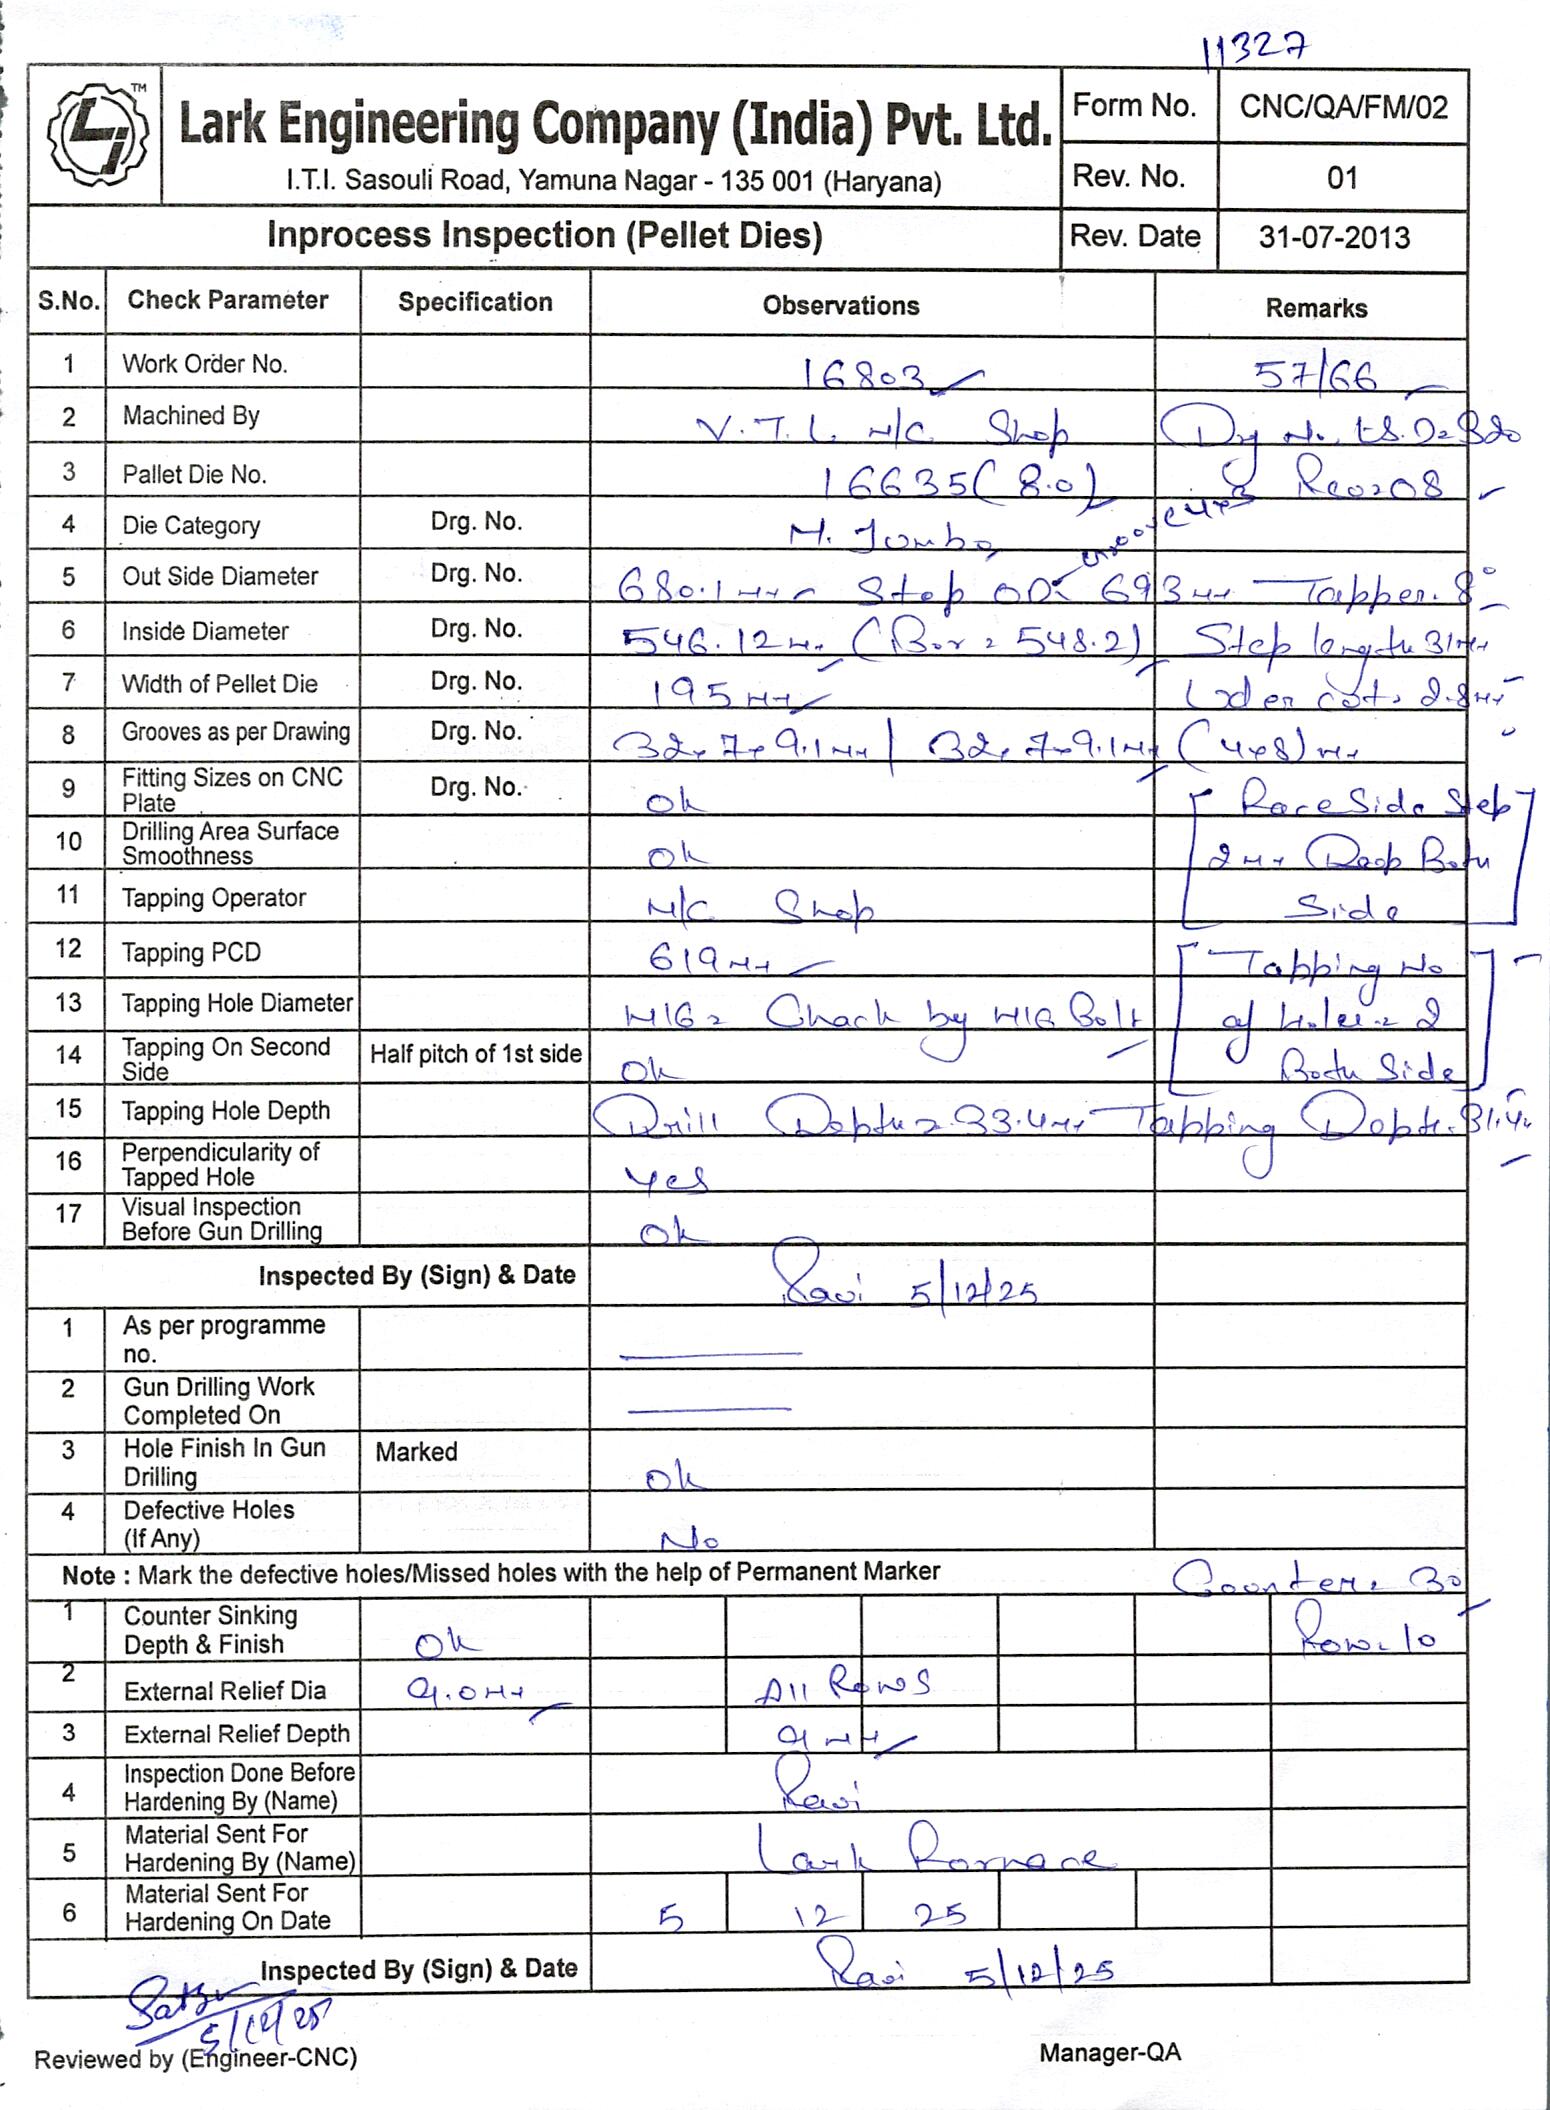 11327
Lark Engineering Company (India) Pvt. Ltd.
I.T.I. Sasouli Road, Yamuna Nagar - 135 001 (Haryana)
Form No. CNC/QA/FM/02
Rev. No. 01
Inprocess Inspection (Pellet Dies) Rev. Date 31-07-2013
S.No. Check Parameter Specification Observations Remarks
1 Work Order No. 16803 57/66
2 Machined By V.T.L M/C Shop Drg No.
3 Pallet Die No. 16635 (8.0)
4 Die Category Drg. No. M. Jumbo
5 Out Side Diameter Drg. No. 680.1mm Step OD= 693mm Tapper. 8°
6 Inside Diameter Drg. No. 546.12mm (Bor = 548.2) Step length 31mm
7 Width of Pellet Die Drg. No. 195mm Under cut. 2.8mm
8 Grooves as per Drawing Drg. No. 32.7-9.1mm | 32.7-9.1mm (4x8) mm
9 Fitting Sizes on CNC Plate Drg. No. Ok [Race Side Step
10 Drilling Area Surface Smoothness Ok 2mm Deep Both
11 Tapping Operator M/C Shop Side]
12 Tapping PCD 619mm [Tapping No
13 Tapping Hole Diameter M16= Chack by M16 Bolt of Hole = 2
14 Tapping On Second Side Half pitch of 1st side Ok Both Side]
15 Tapping Hole Depth Drill Depth = 33.4mm Tapping Depth. 31.4
16 Perpendicularity of Tapped Hole Yes
17 Visual Inspection Before Gun Drilling Ok
Inspected By (Sign) & Date Ravi 5/12/25
1 As per programme no.
2 Gun Drilling Work Completed On
3 Hole Finish In Gun Drilling Marked Ok
4 Defective Holes (If Any) No
Note : Mark the defective holes/Missed holes with the help of Permanent Marker Counter = 30
1 Counter Sinking Depth & Finish Ok Row- 10
2 External Relief Dia 9.0mm All Rows
3 External Relief Depth 9mm
4 Inspection Done Before Hardening By (Name) Ravi
5 Material Sent For Hardening By (Name) Lark Fornace
6 Material Sent For Hardening On Date 5 12 25
Inspected By (Sign) & Date Ravi 5/12/25
5/12/25
Reviewed by (Engineer-CNC) Manager-QA